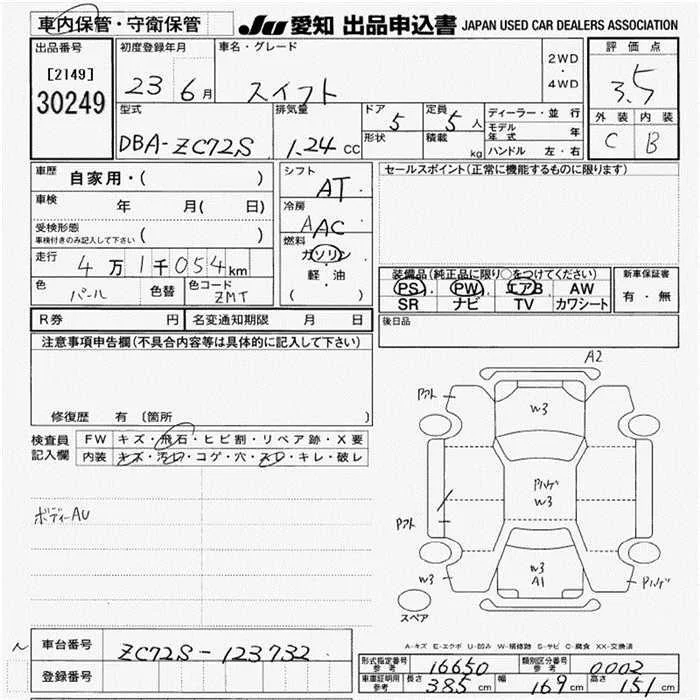 車内保管・守衛保管 JU 愛知 出品申込書 JAPAN USED CAR DEALERS ASSOCIATION
出品番号 初度登録年月 車名・グレード 2WD・4WD 評価点
[2149] 23 6月 スイフト 3.5
30249 型式 排気量 ドア 5 定員 5人 ディーラー・並行 外装 内装
DBA-ZC72S 1.24 CC 形状 積載 kg モデル年式 年 C B
ハンドル 左・右
車歴 自家用・( ) シフト AT セールスポイント(正常に機能するものに限ります)
車検 年 月( 日) 冷房 AAC
受検形態 車検付きのみ記入して下さい 燃料 ガソリン
走行 4万1千054km 軽・油 装備品(純正品に限り○をつけてください) 新車保証書
色 パール 色替 色コード ZMT ( ) PS PW エアB AW 有・無
SR ナビ TV カワシート
R券 円 名変通知期限 月 日 後日品
注意事項申告欄(不具合内容等は具体的に記入して下さい)
A2
W3
修復歴 有 〔箇所 〕
検査員記入欄 FW キズ・飛石・ヒビ割・リペア跡・X要
内装 キズ・汚レ・コゲ・穴・スレ・キレ・破レ
W3
ボディーAU
W3
W3
A1
スペア
A-キズ E-エクボ U-凹み W-補修跡 S-サビ C-腐食 XX-交換済
車台番号 ZC72S-123732
登録番号 形式指定番号 参考 16650 類別区分番号 参考 0002
車庫証明用 参考 長さ 385 cm 幅 169 cm 高さ 151 cm